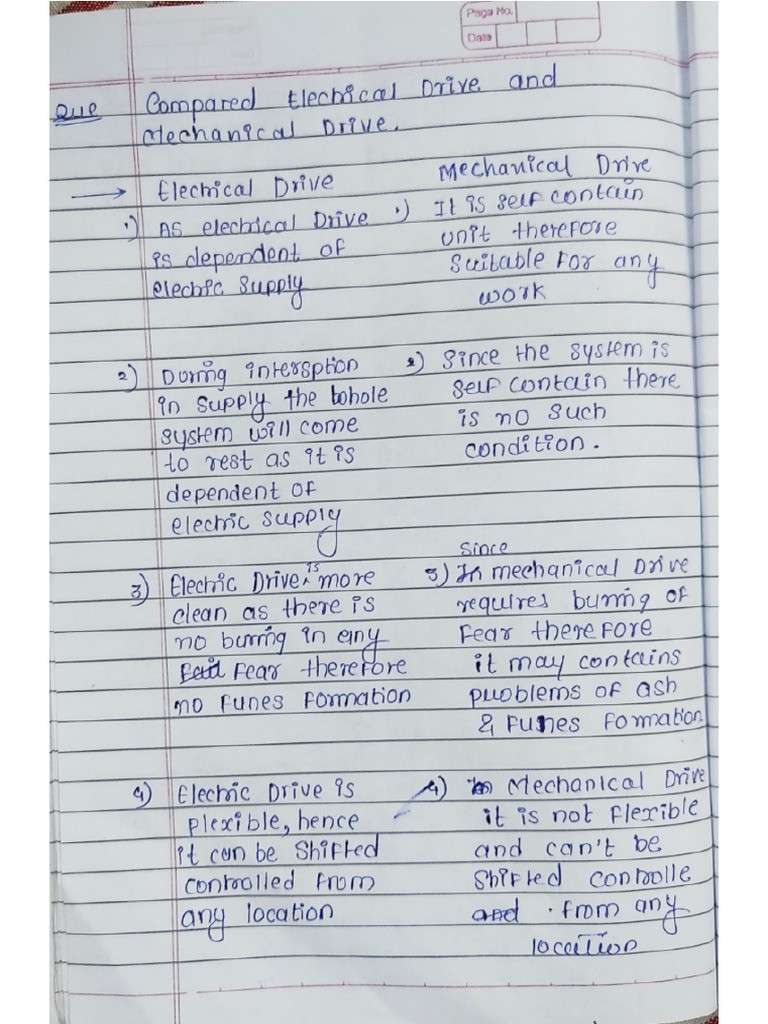 Page No.
Date
Que Compared Electrical Drive and
Mechanical Drive.
→ Electrical Drive
1) As electrical Drive
is dependent of
electric supply
2) During intersption
in supply the whole
system will come
to rest as it is
dependent of
electric supply
3) Electric Drive is more
clean as there is
no burring in any
Fear therefore
no Funes Formation
4) Electric Drive is
plexible, hence
it can be Shifted
controlled from
any location
Mechanical Drive
1) It is self contain
unit therefore
Suitable For any
work
2) Since the system is
self contain there
is no such
condition.
Since
3) In mechanical Drive
requires burring of
Fear therefore
it may contains
problems of ash
& Funes Formation
4) In Mechanical Drive
it is not Flexible
and can't be
Shifted controlle
and . from any
location